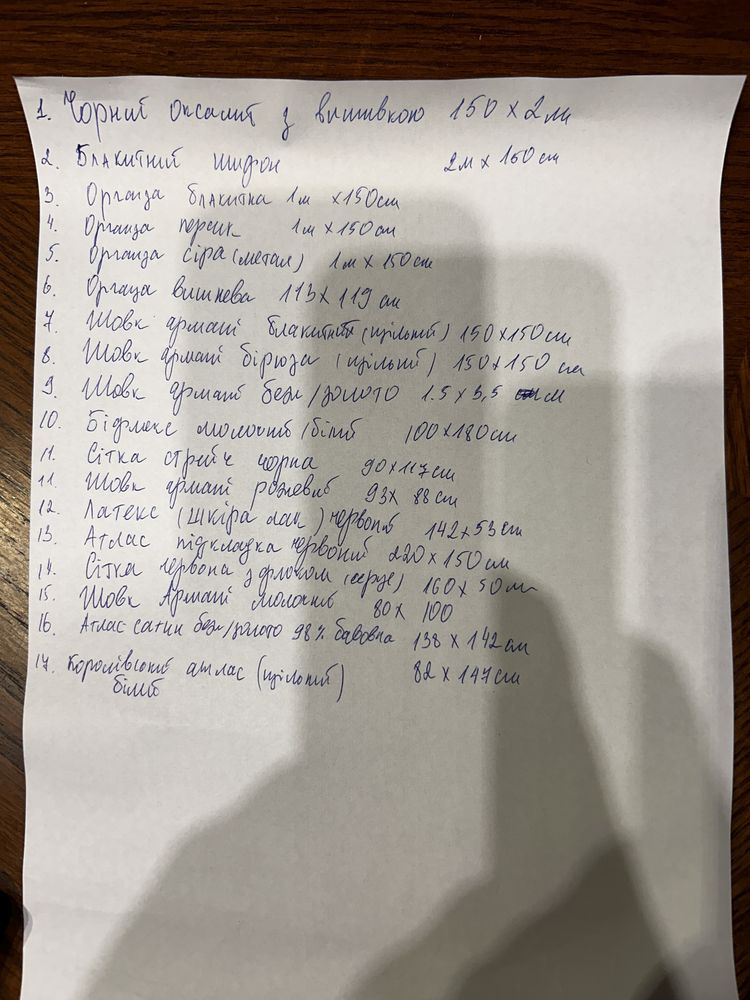 1. Чорний оксамит з вишивкою 150 х 2 м
2. Блакитний шифон 2м х 150 см
3. Органза блакитна 1м х150см
4. Органза персик 1м х150см
5. Органза сіра (метал) 1м х 150см
6. Органза вишнева 113х 119 см
7. Шовк армані блакитний (щільний) 150х150см
8. Шовк армані бірюза (щільний) 150х150 см
9. Шовк армані беж/золото 1.5 х 3,5 м
10. Біфлекс молочний/білий 100х180см
11. Сітка стрейч чорна 90х117см
11. Шовк армані рожевий 93х 88 см
12. Латекс (шкіра лак) червоний 142х53см
13. Атлас підкладка червоний 220 х 150см
14. Сітка червона з флоком (серце) 160х 50 см
15. Шовк Армані молочний 80х 100
16. Атлас сатин беж/золото 98% бавовна 138 х 142 см
17. Королівський атлас (щільний) 82 х 147см
білий